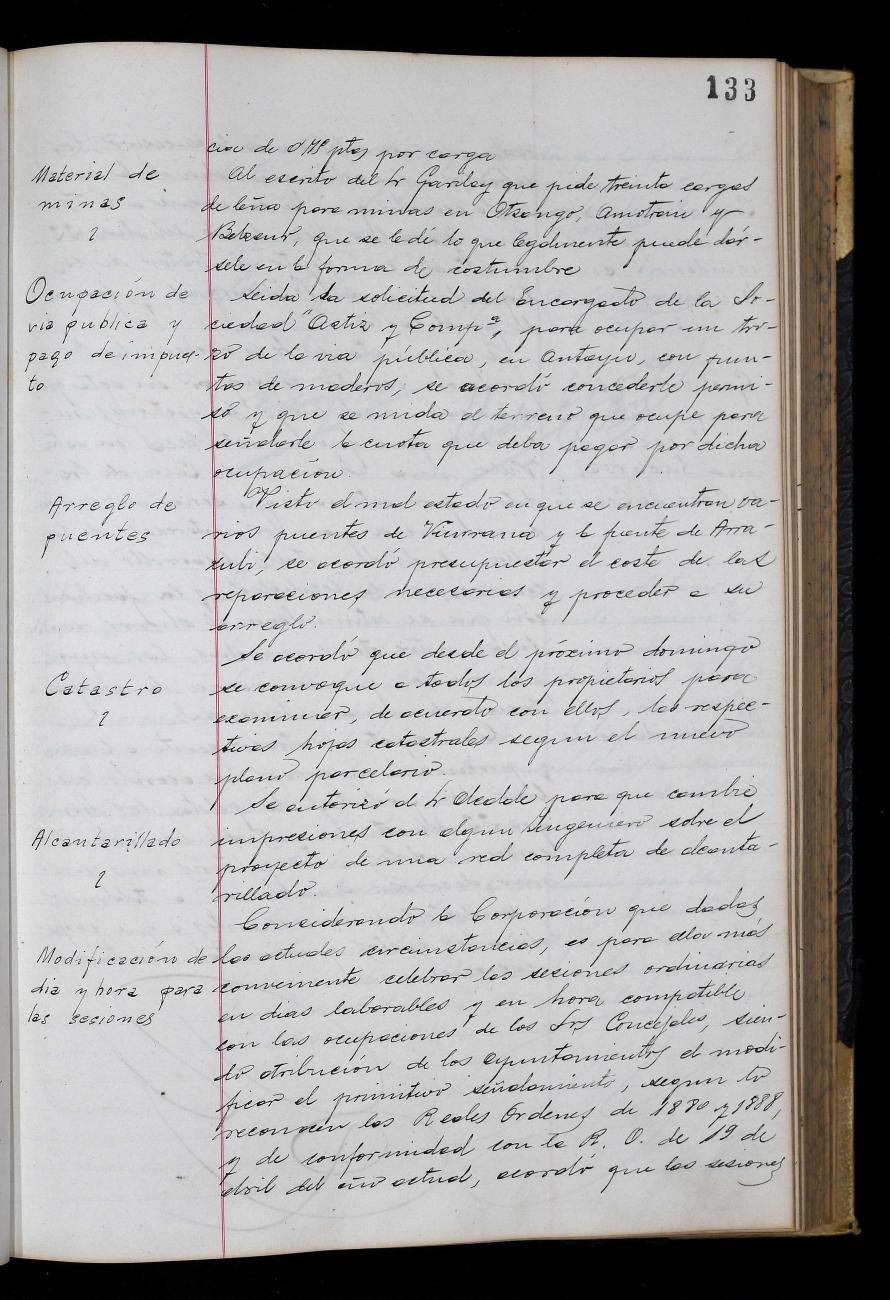 133
cia de ptas por carga
Material de
minas
Al escrito del Sr Garilay que pide treinta cargas
de leña para minas en Otsango, Amotrain y
que se le dé lo que legalmente puede dár-
sele en la forma de costumbre
Ocupación de
via publica y
pago de impues-
to
Leida la solicitud del Encargado de la So-
ciedad "Astiz y Compª, para ocupar un tro-
zo de la via pública, en Antoyu, con pun-
tos de maderos, se acordó concederle permi-
so y que se mida el terreno que ocupe para
señalarle la cuota que deba pagar por dicha
ocupación.
Arreglo de
puentes
Visto el mal estado en que se encuentran va-
rios puentes de y la fuente de Arra-
subi, se acordó presupuestar el coste de las
reparaciones necesarias y proceder a su
arreglo.
Catastro
Se acordó que desde el próximo domingo
se convoque a todos los propietarios para
examinar, de acuerdo con ellos, las respec-
tivas hojas catastrales segun el nuevo
plano parcelario.
Alcantarillado
Se autorizó al Sr Alcalde para que cambie
impresiones con algun Ingeniero sobre el
proyecto de una red completa de alcanta-
rillado.
Modificación de
dia y hora para
las sesiones
Considerando la Corporación que dadas
las actuales circunstancias, es para ella más
conveniente celebrar las sesiones ordinarias
en dias laborables y en hora compatible
con las ocupaciones de los Srs Concejales, sien-
do atribución de los ayuntamientos el modi-
ficar el primitivo señalamiento, segun lo
reconocen las Reales Ordenes de 1880 y 1888,
y de conformidad con la R. O. de 19 de
abril del año actual, acordó que las sesiones